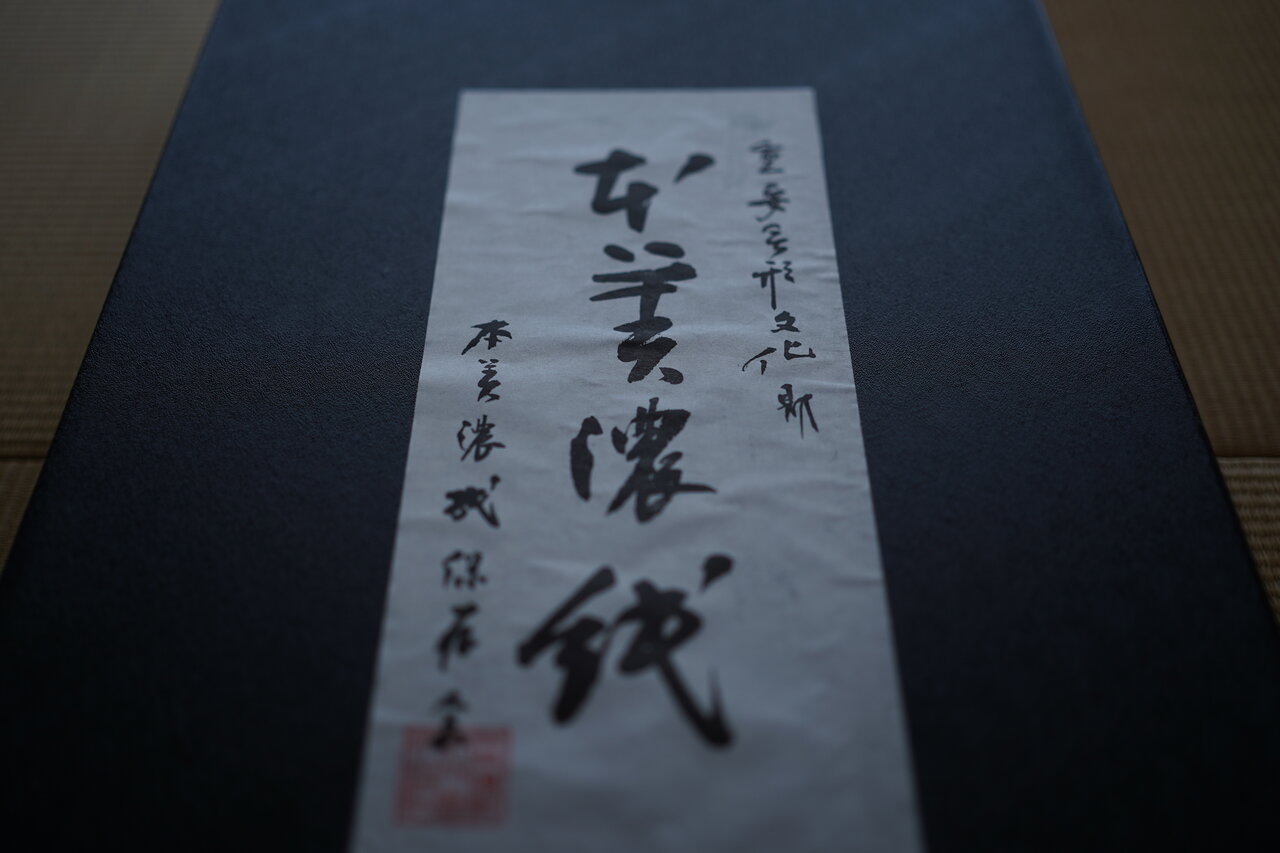 重要無形文化財
本美濃紙
本美濃紙保存会